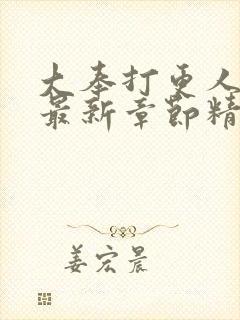 大奉打更人
最新章节精
姜宏晨